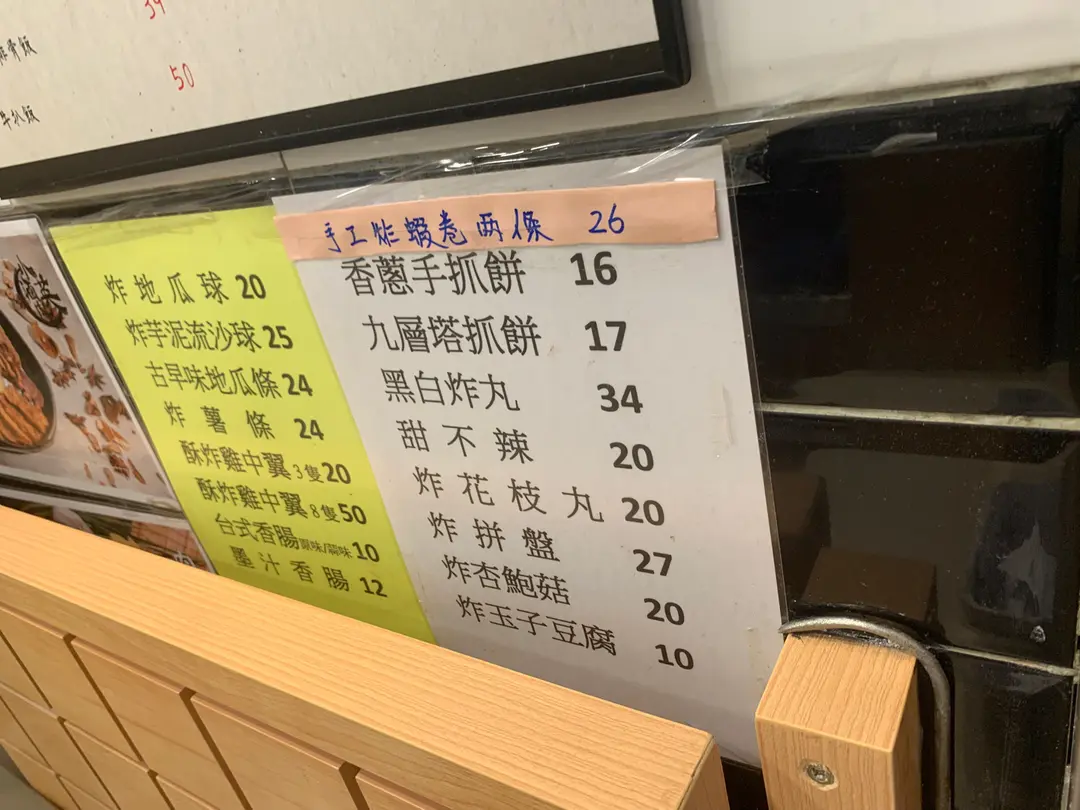 39
排骨飯
50
牛扒飯
炸地瓜球 20
炸芋泥流沙球 25
古早味地瓜條 24
炸薯條 24
酥炸雞中翼 3隻 20
酥炸雞中翼 8隻 50
台式香腸 原味/蒜味 10
墨汁香腸 12
手工炸蝦卷两條 26
香蔥手抓餅 16
九層塔抓餅 17
黑白炸丸 34
甜不辣 20
炸花枝丸 20
炸拼盤 27
炸杏鮑菇 20
炸玉子豆腐 10